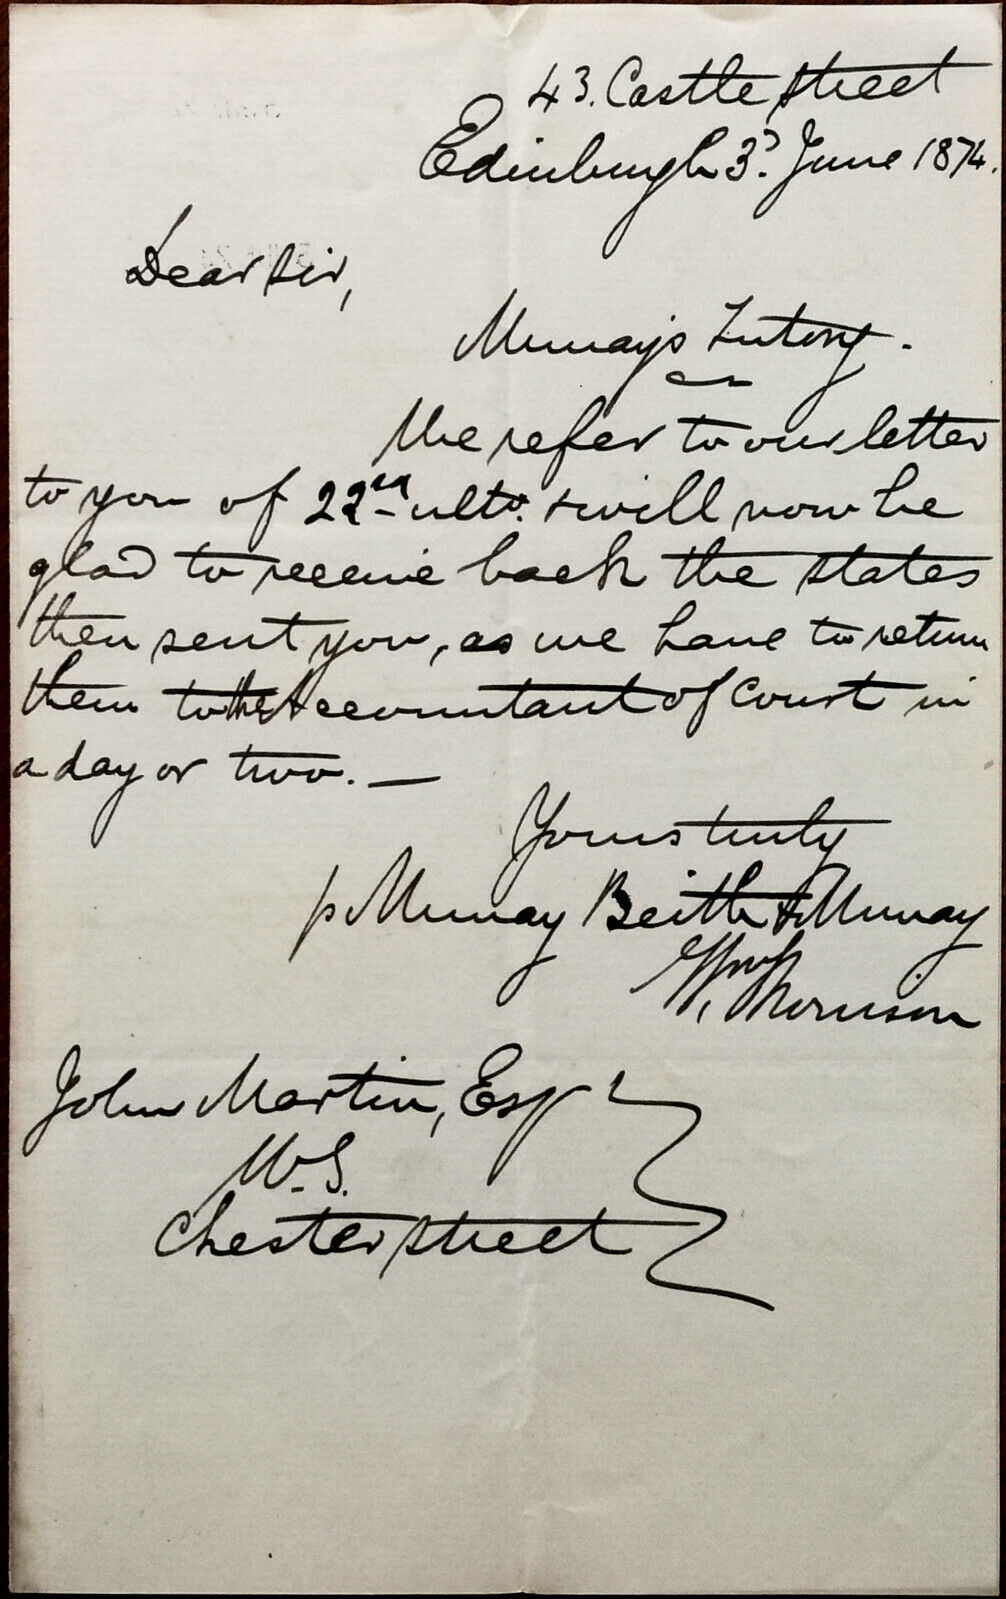 43. Castle Street
Edinburgh 3d. June 1874.
Dear Sir,
Murray's Tutory.
We refer to our letter
to you of 22nd ulto. & will now be
glad to receive back the states
then sent you, as we have to return
them to the Accountant of Court in
a day or two. —
Yours truly
p Murray Beith & Murray
Morrison
John Martin, Esqr
W.S.
Chester Street